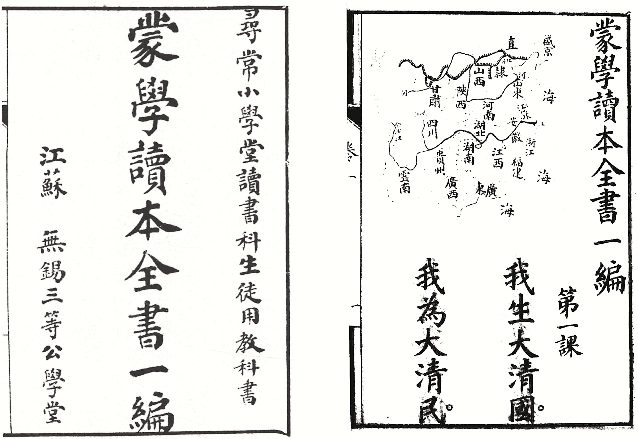 尋常小學堂讀書科生徒用教科書
蒙學讀本全書一編
江蘇 無錫三等公學堂
蒙學讀本全書一編
盛京
直隸
山西
山東
海
甘肅
陝西
河南
安徽
四川
湖北
浙江
海
貴州
湖南
江西
福建
雲南
廣西
廣東
海
第一課
我生大清國。
我為大清民。